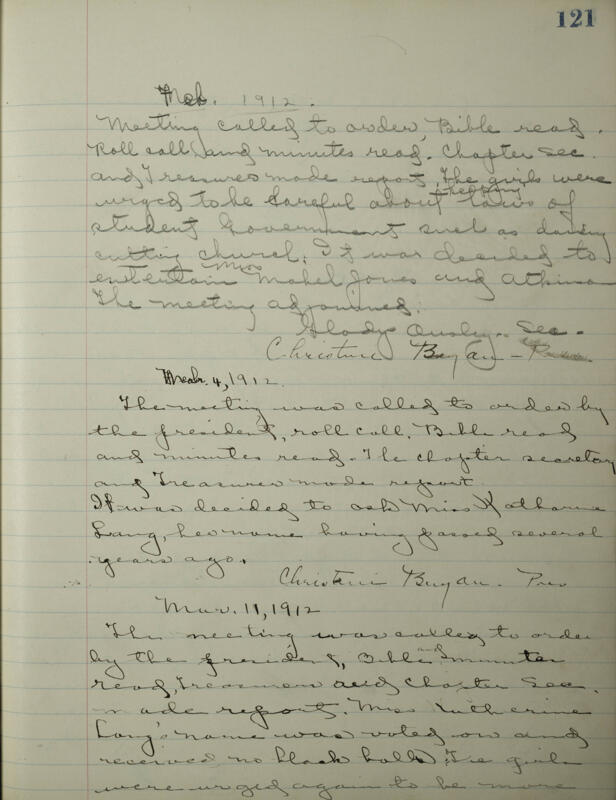 121
Feb. 1912.
Meeting called to order, Bible read.
Roll call and minutes read. Chapter Sec.
and Treasures made report. The girls were
urged to be careful about keeping laws of
student Government such as dancing
cutting church. It was decided to
entertain Miss Mabel Jones and Atkinson
The meeting adjourned.
Gladys Sec.
Christine Bryan - Pres.
Mar. 4, 1912.
The meeting was called to order by
the president, roll call, Bible read
and minutes read. The chapter secretary
and Treasures made report.
It was decided to ask Miss Katharine
Lang, her name having passed several
years ago.
Christine Bryan. Pres
Mar. 11, 1912
The meeting was called to order
by the president, Bible and minutes
read, Treasures and Chapter Sec.
made report. Miss Katherine
Lang's name was voted on and
received no black balls. The girls
were urged again to be more